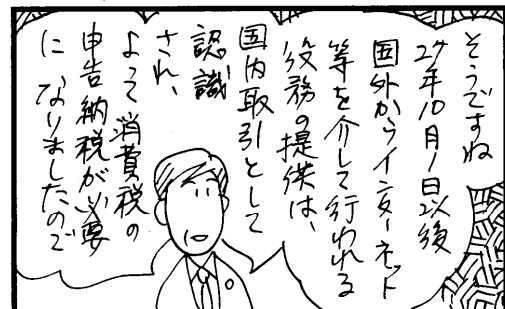 そうですね
27年10月1日以後
国外からインターネット
等を介して行われる
役務の提供は、
国内取引として
認識
され、
よって消費税の
申告納税が必要
になりましたので